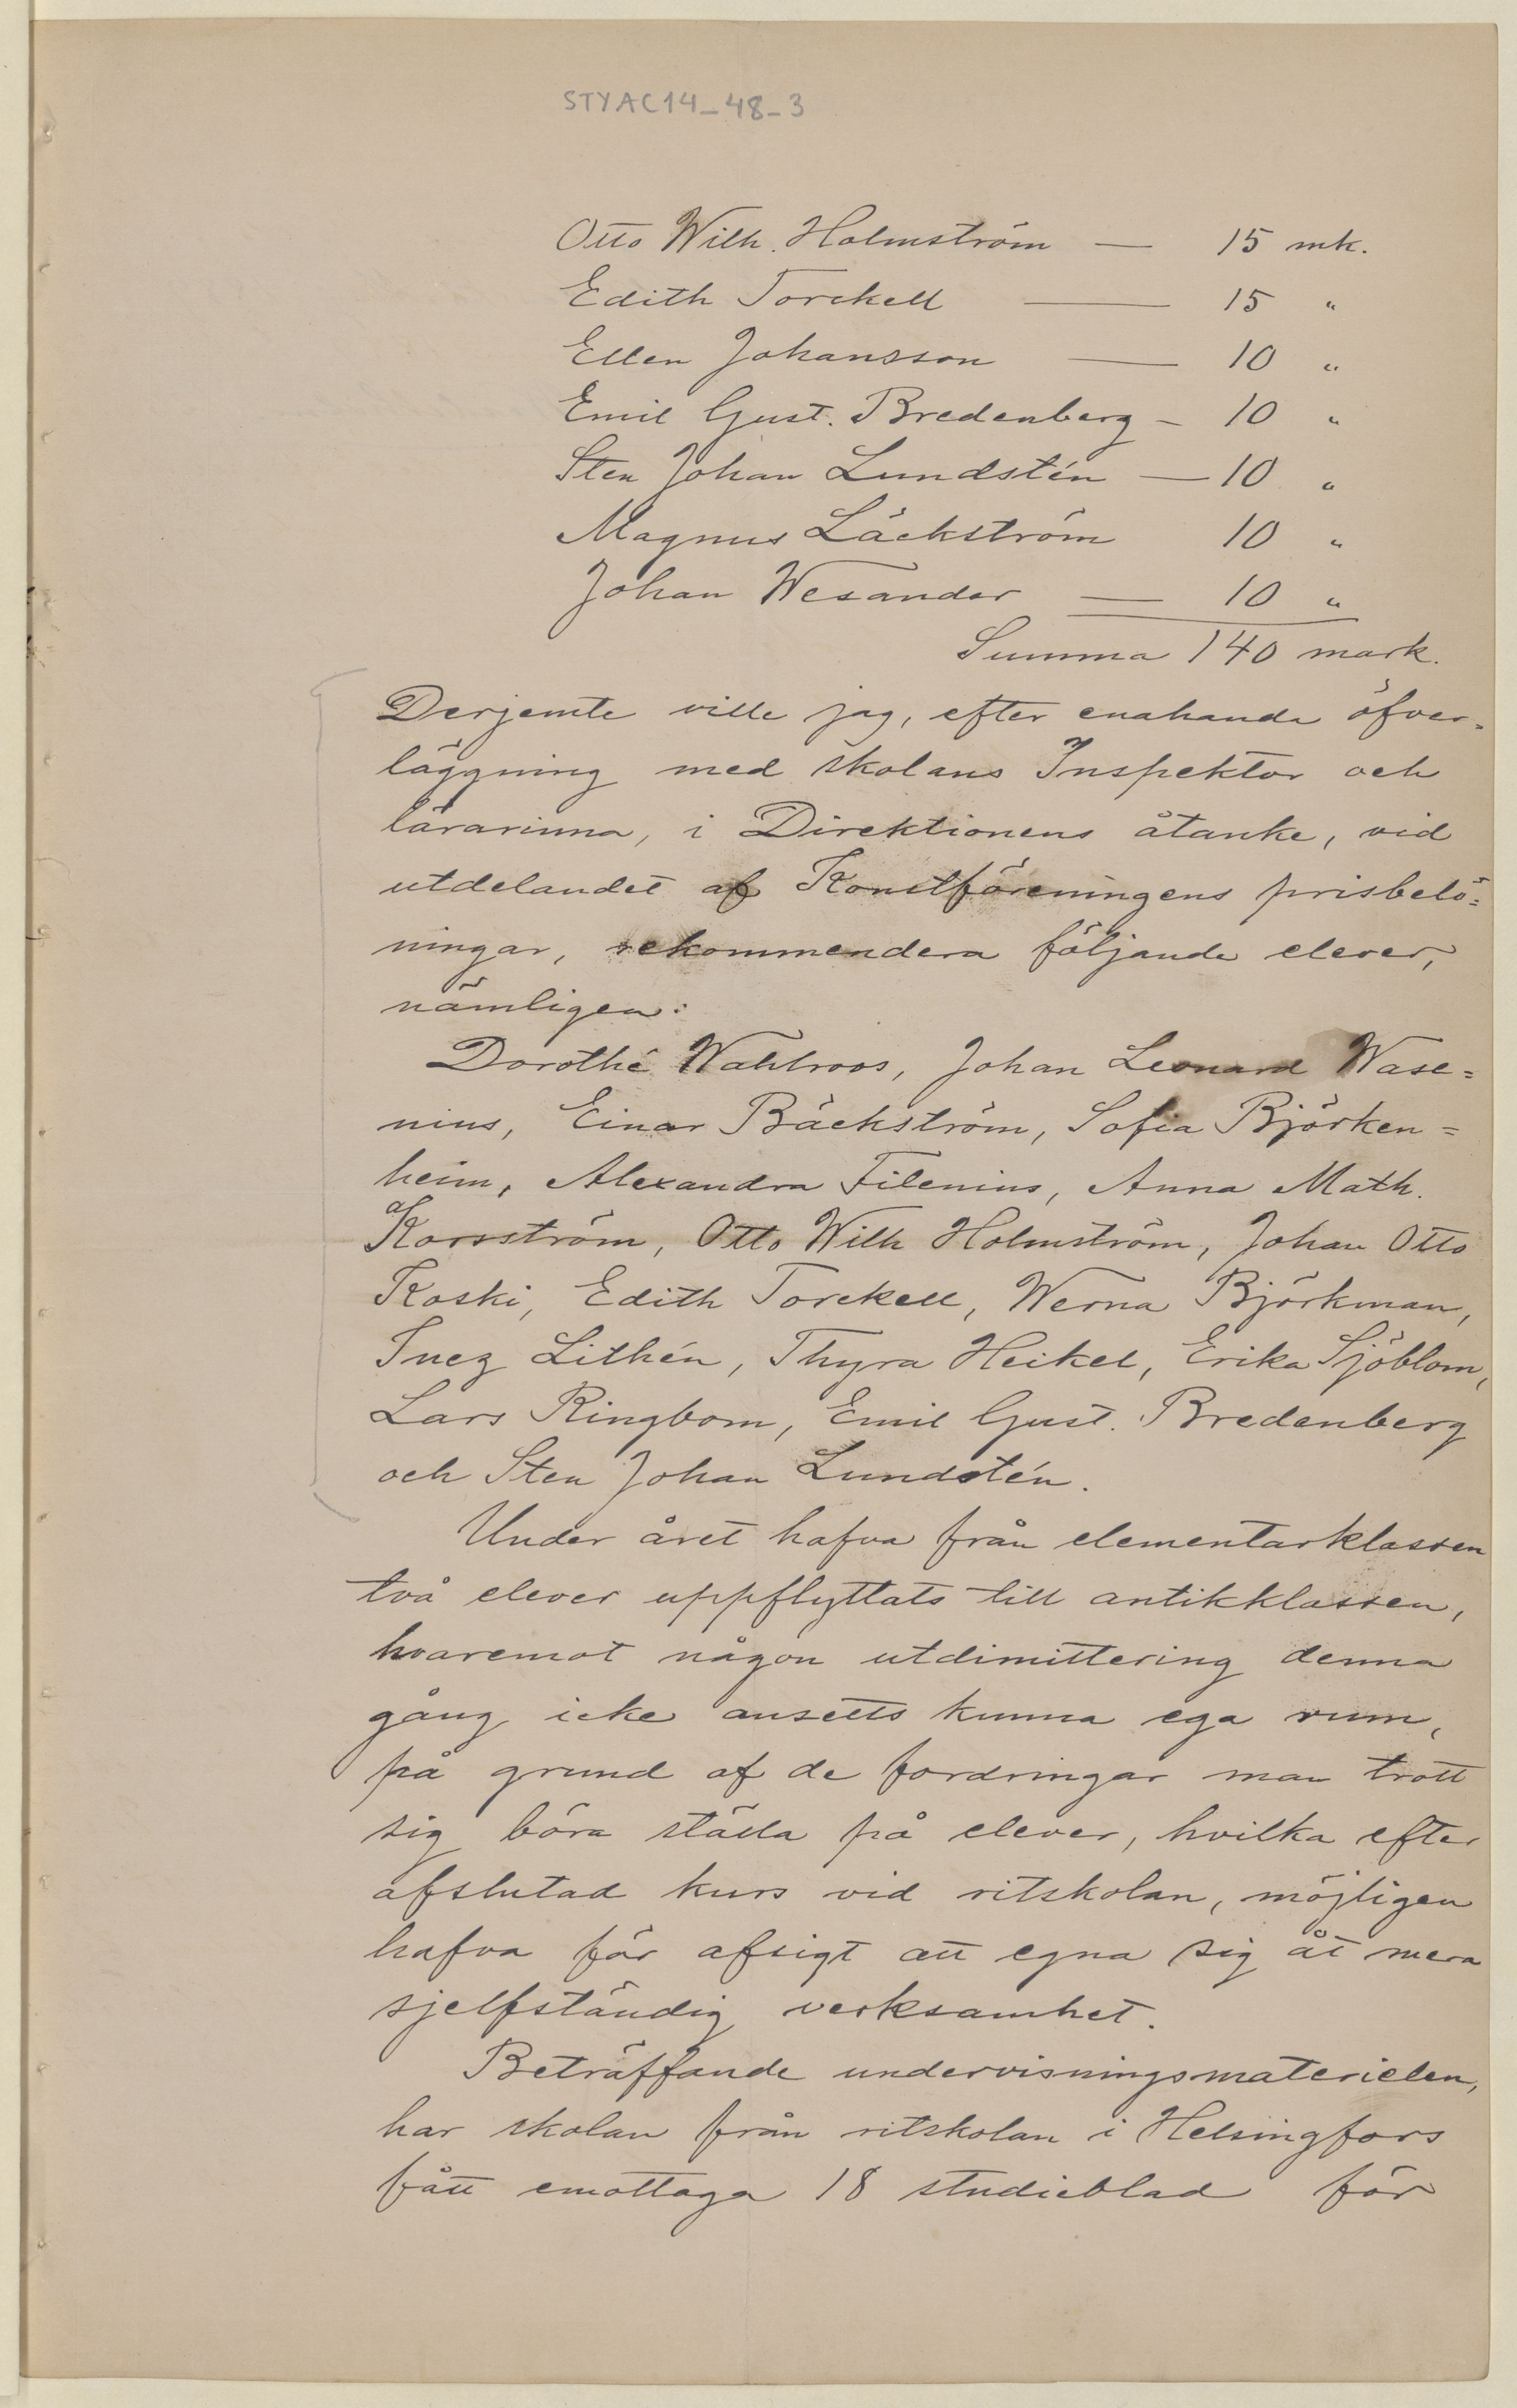 STYAC14_48_3
Otto Wilh. Holmström — 15 mk.
Edith Torckell — 15 "
Ellen Johansson — 10 "
Emil Gust. Bredenberg – 10 "
Sten Johan Lundstén — 10 "
Magnus Läckström 10 "
Johan Wesander — 10 "
Summa 140 mark.
Derjemte ville jag, efter enahanda öfver=
läggning med skolans Inspektor och
lärarinna, i Direktionens åtanke, vid
utdelandet af Konstföreningens prisbelö=
ningar, rekommendera följande elever,
nämligen:
Dorothé Wahlroos, Johan Leonard Wase=
nius, Einar Bäckström, Sofia Björken=
heim, Alexandra Filenius, Anna Math.
Korsström, Otto Wilh Holmström, Johan Otto
Koski, Edith Torckell, Werna Björkman,
Inez Lithén, Thyra Heikel, Erika Sjöblom,
Lars Ringbom, Emil Gust. Bredenberg
och Sten Johan Lundstén.
Under året hafva från elementarklassen
två elever uppflyttats till antikklassen,
hvaremot någon utdimittering denna
gång icke ansetts kunna ega rum,
på grund af de fordringar man trott
sig böra ställa på elever, hvilka efter
afslutad kurs vid ritskolan, möjligen
hafva för afsigt att egna sig åt mera
sjelfständig verksamhet.
Beträffande undervisningsmaterielen,
har skolan från ritskolan i Helsingfors
fått emottaga 18 studieblad för